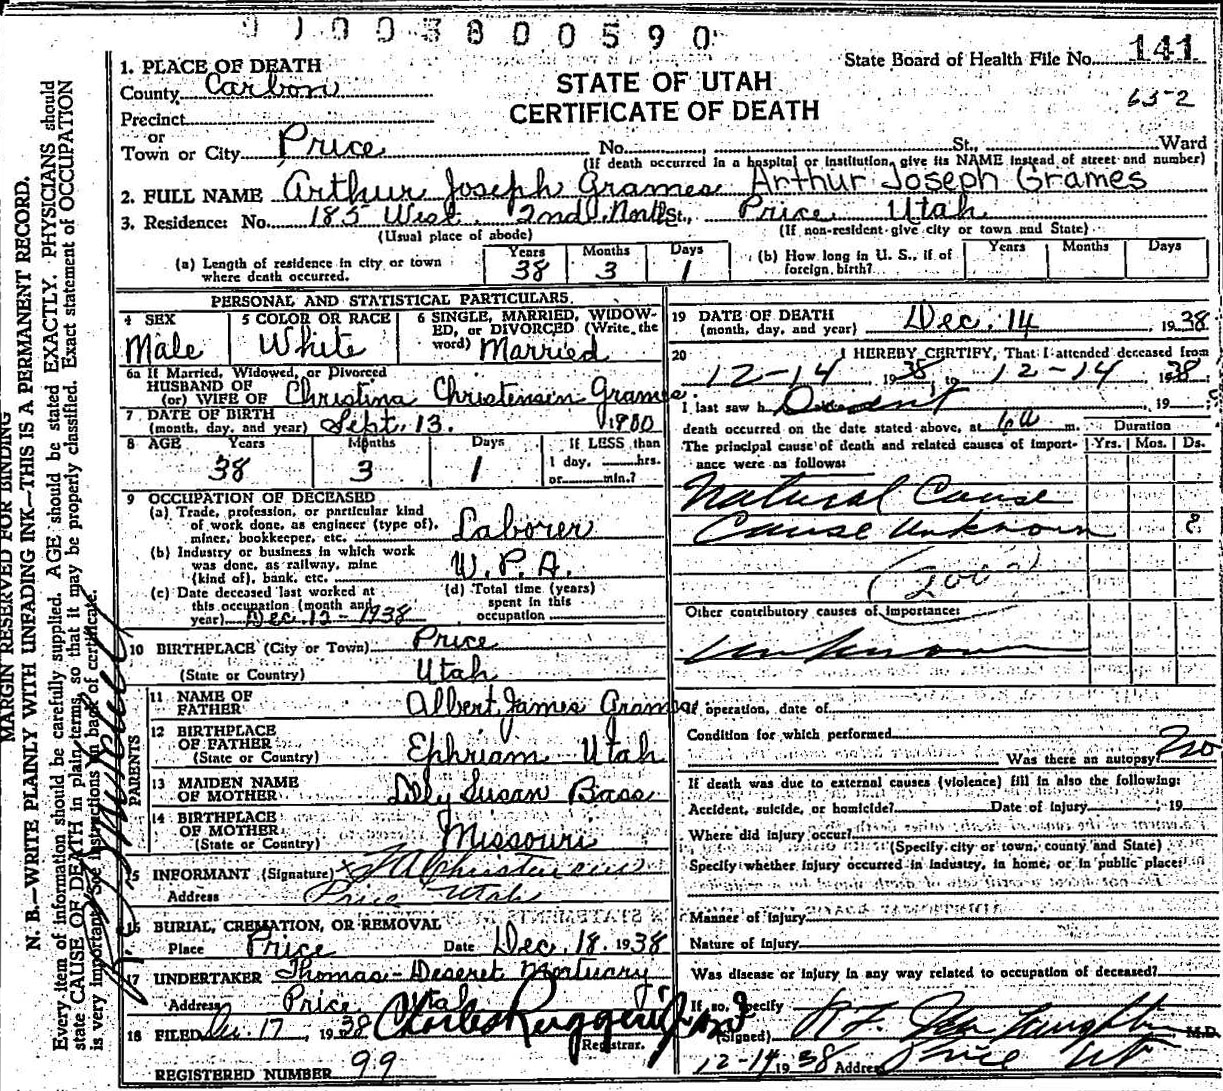 9 1 0 0 3 8 0 0 5 9 0
State Board of Health File No. 141
1. PLACE OF DEATH
County Carbon
STATE OF UTAH
CERTIFICATE OF DEATH
63-2
Precinct
or
Town or City Price No. St., Ward
(If death occurred in a hospital or institution, give its NAME instead of street and number)
2. FULL NAME Arthur Joseph Grames Arthur Joseph Grames
3. Residence: No. 185 West 2nd North St., Price Utah
(Usual place of abode) (If non-resident give city or town and State)
(a) Length of residence in city or town where death occurred. Years 38 Months 3 Days 1
(b) How long in U. S., if of foreign birth? Years Months Days
PERSONAL AND STATISTICAL PARTICULARS.
4 SEX Male
5 COLOR OR RACE White
6 SINGLE, MARRIED, WIDOWED, or DIVORCED (Write the word) Married
6a If Married, Widowed, or Divorced
HUSBAND OF
(or) WIFE OF Christina Christensen Grames
7 DATE OF BIRTH
(month, day, and year) Sept. 13. 1900
8 AGE Years 38 Months 3 Days 1
If LESS than
1 day, hrs.
or min.?
9 OCCUPATION OF DECEASED
(a) Trade, profession, or particular kind
of work done, as engineer (type of),
miner, bookkeeper, etc. Laborer
(b) Industry or business in which work
was done, as railway, mine
(kind of), bank, etc. W. P. A.
(c) Date deceased last worked at
this occupation (month and
year) Dec. 12-1938
(d) Total time (years)
spent in this
occupation
10 BIRTHPLACE (City or Town) Price
(State or Country) Utah
PARENTS
11 NAME OF
FATHER Albert James Grames
12 BIRTHPLACE
OF FATHER
(State or Country) Ephriam Utah
13 MAIDEN NAME
OF MOTHER Lilly Susan Bass
14 BIRTHPLACE
OF MOTHER
(State or Country) Missouri
15 INFORMANT (Signature) x Christensen
Address Price Utah
16 BURIAL, CREMATION, OR REMOVAL
Place Price Date Dec. 18. 1938
17 UNDERTAKER Thomas-Deseret Mortuary
Address Price Utah
18 FILED Dec. 17, 1938 Charles Ruggeri
Registrar.
REGISTERED NUMBER 99
19 DATE OF DEATH
(month, day, and year) Dec. 14 1938
20 I HEREBY CERTIFY, That I attended deceased from
12-14 1938, to 12-14 1938.
I last saw h , 19
death occurred on the date stated above, at m.
The principal cause of death and related causes of importance were as follows:
Duration
Yrs. Mos. Ds.
Natural Cause
Cause Unknown ?
Other contributory causes of importance:
Unknown
If operation, date of
Condition for which performed
Was there an autopsy? no
If death was due to external causes (violence) fill in also the following:
Accident, suicide, or homicide? Date of injury 19
Where did injury occur?
(Specify city or town, county and State)
Specify whether injury occurred in industry, in home, or in public place:
Manner of injury
Nature of injury
Was disease or injury in any way related to occupation of deceased?
If so, Specify
(Signed) M.D.
12-14 1938 Address Price Ut
MARGIN RESERVED FOR BINDING
N. B.—WRITE PLAINLY WITH UNFADING INK—THIS IS A PERMANENT RECORD.
Every item of information should be carefully supplied. AGE should be stated EXACTLY. PHYSICIANS should
state CAUSE OF DEATH in plain terms, so that it may be properly classified. Exact statement of OCCUPATION
is very important. See instructions on back of certificate.